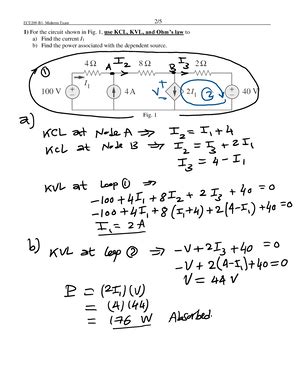 ECE205 B1: Midterm Exam 2/5
1) For the circuit shown in Fig. 1, use KCL, KVL, and Ohm's law to
a) Find the current I₁
b) Find the power associated with the dependent source.
4 Ω A I₂ 8 Ω B I₃ 2 Ω
① I₁
100 V 4 A V 2I₁ ② 40 V
Fig. 1
a)
KCL at Node A ⇒ I₂ = I₁ + 4
KCL at Node B ⇒ I₂ = I₃ + 2I₁
I₃ = 4 - I₁
KVL at Loop ① ⇒
-100 + 4I₁ + 8I₂ + 2I₃ + 40 = 0
-100 + 4I₁ + 8(I₁+4) + 2(4-I₁) + 40 = 0
I₁ = 2A
b) KVL at loop ② ⇒ -V + 2I₃ + 40 = 0
-V + 2(4-I₁) + 40 = 0
V = 44 V
P = (2I₁)(V)
= (4)(44)
= 176 W Absorbed.